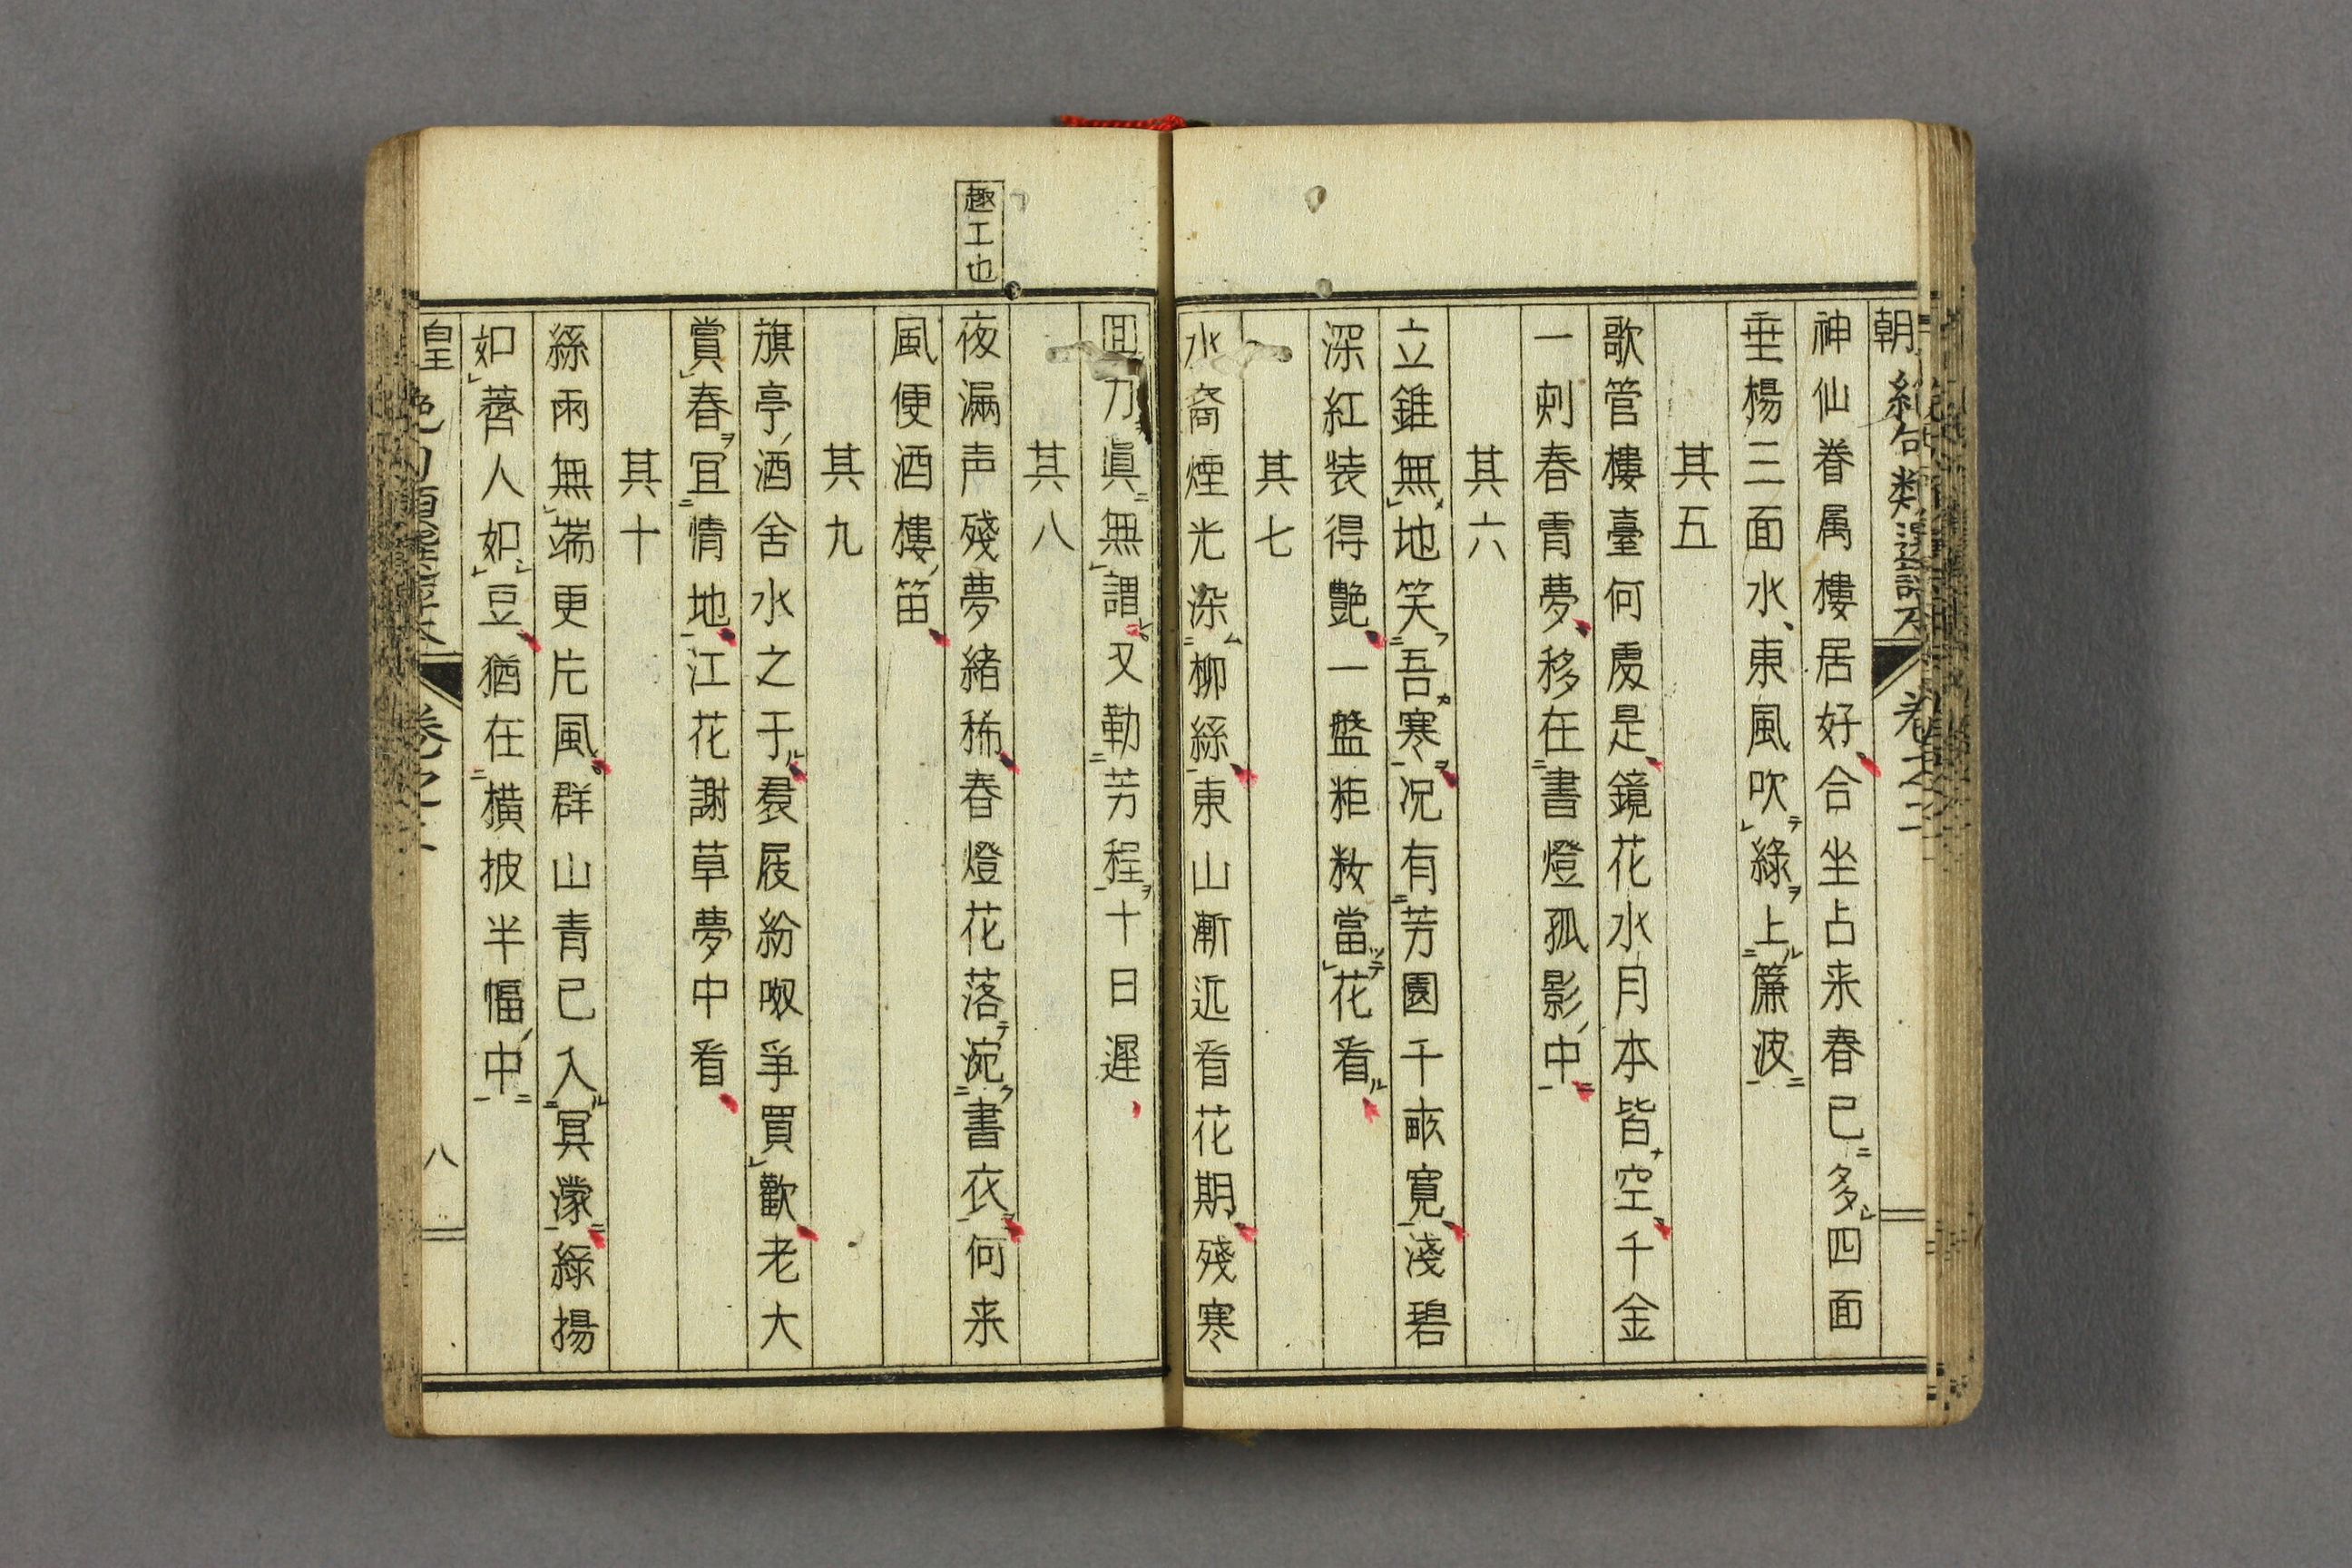 朝
絶句類選評本
卷之二
神仙眷属樓居好合坐占来春已多四面
垂楊三面水東風吹綠上簾波
其五
歌管樓臺何處是鏡花水月本皆空千金
一刺春霄夢移在書燈孤影中
其六
立錐無地笑吾寒况有芳園千畝寛淺碧
深紅装得艶一盤粔籹當花看
其七
水裔煙光染柳絲東山漸近看花期殘寒
力真無謂又勒芳程十日遲
其八
趣工也
夜漏声殘夢緒稀春燈花落涴書衣何来
風便酒樓笛
其九
旗亭酒舎水之于裠屐紛呶爭買歡老大
賞春冝情地江花謝草夢中看
其十
絲雨無端更片風群山青已入冥濛綠揚
如薺人如豆猶在橫披半幅中
皇
八